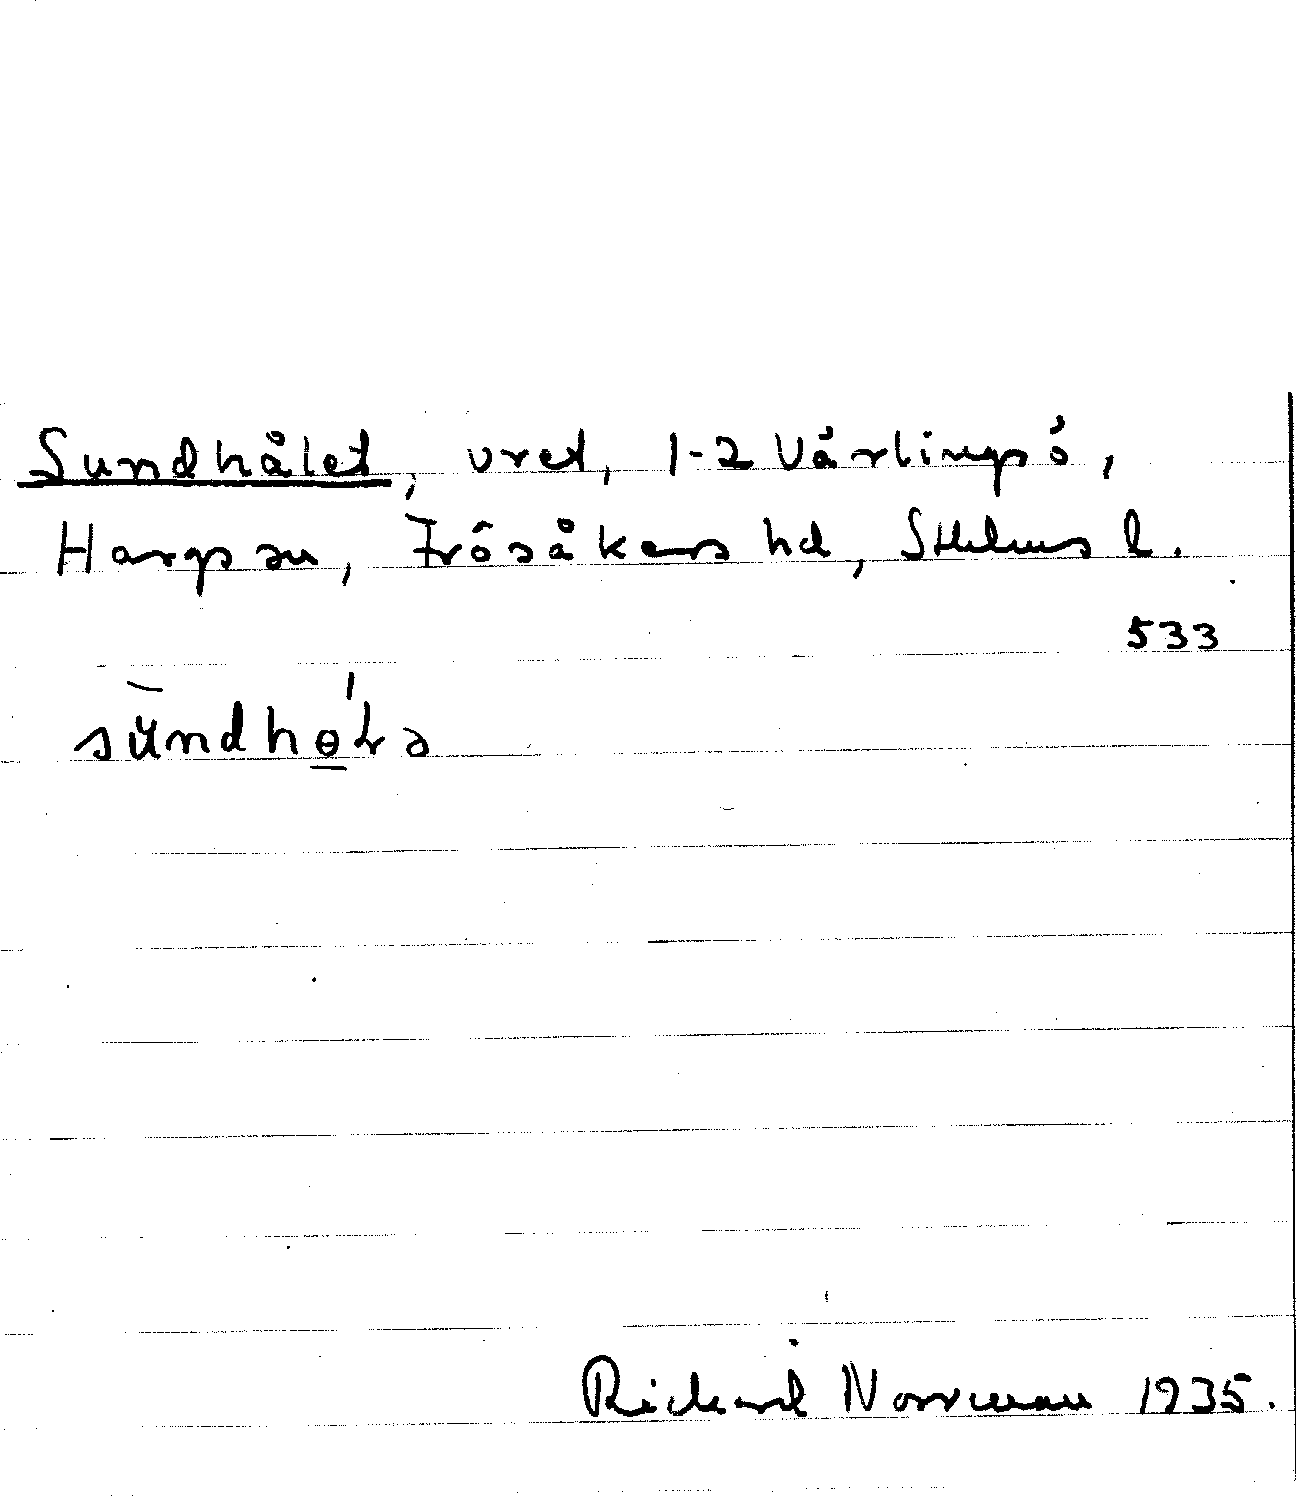 Sundhålet, vret, 1-2 Vårlingsö,
Hargs sn, Frösåkers hd, Sthlms l.
533
Rickard Norrman 1935.